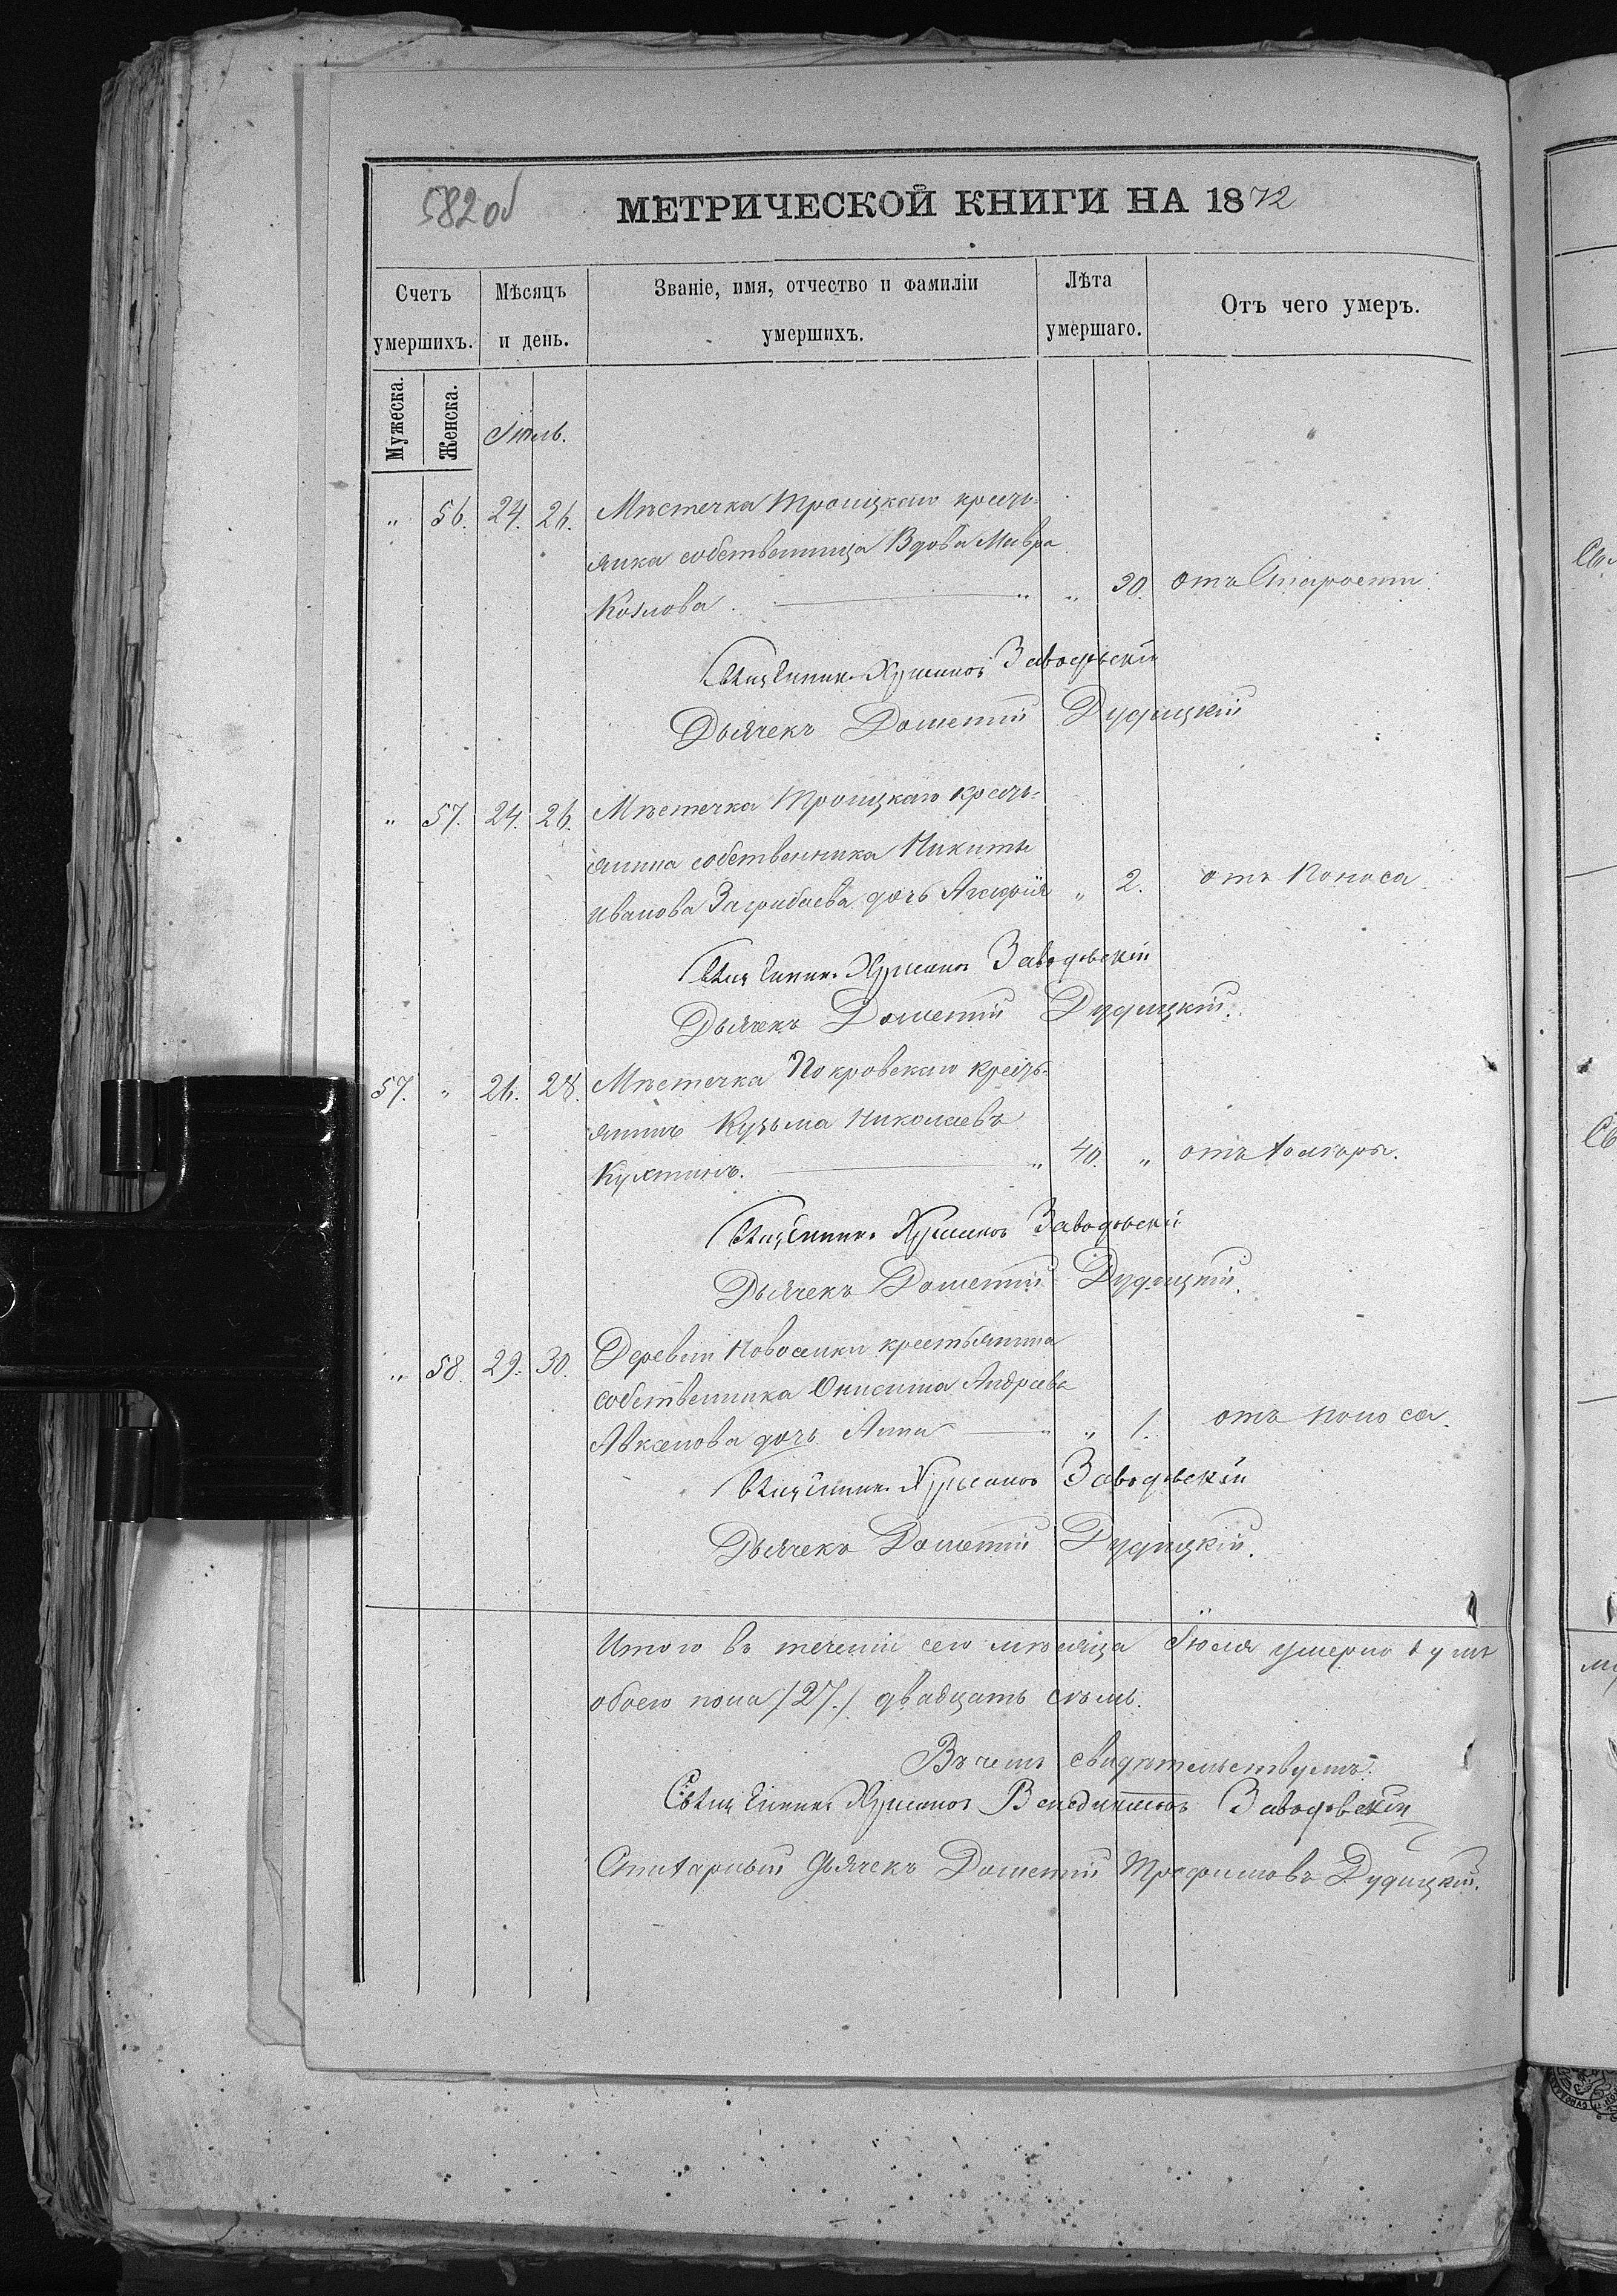 582 об
МЕТРИЧЕСКОЙ КНИГИ НА 1872
Счетъ умершихъ.
Мѣсяцъ и день.
Званіе, имя, отчество и фамиліи умершихъ.
Лѣта умершаго.
Отъ чего умеръ.
Мужеска.
Женска.
Іюль.
" 56. 24. 26. Мѣстечка Троицкаго кресть-
янка собственница Вдова Мавра
Козлова. " " 90. отъ Старости.
Священник. Хрисанѳъ Заводовскій
Дьячекъ Дометій Дудицкій
" 57. 24. 26. Мѣстечка Троицкаго кресть-
янина собственника Никиты
Иванова дочь " 2. отъ Поноса.
Священник. Хрисанѳъ Заводовскій
Дьячекъ Дометій Дудицкій.
57. " 26. 28. Мѣстечка Покровскаго кресть-
янинъ Кузьма Николаевъ
Кухтинъ. " 40. " отъ холеры.
Священник. Хрисанѳъ Заводовскій
Дьячекъ Дометій Дудицкій.
" 58. 29. 30. Деревни Новоселки крестьянина
собственника Онисима Андреева
дочь Анна " " 1. отъ поноса.
Священник. Хрисанѳъ Заводовскій
Дьячекъ Дометій Дудицкій.
Итого въ теченіи сего мѣсяца Іюля умерло душъ
обоего пола /27./ двадцать семь.
Въ чемъ свидѣтельствуемъ.
Священник. Хрисанѳъ Заводовскій
Дьячекъ Дометій Трофимовъ Дудицкій.